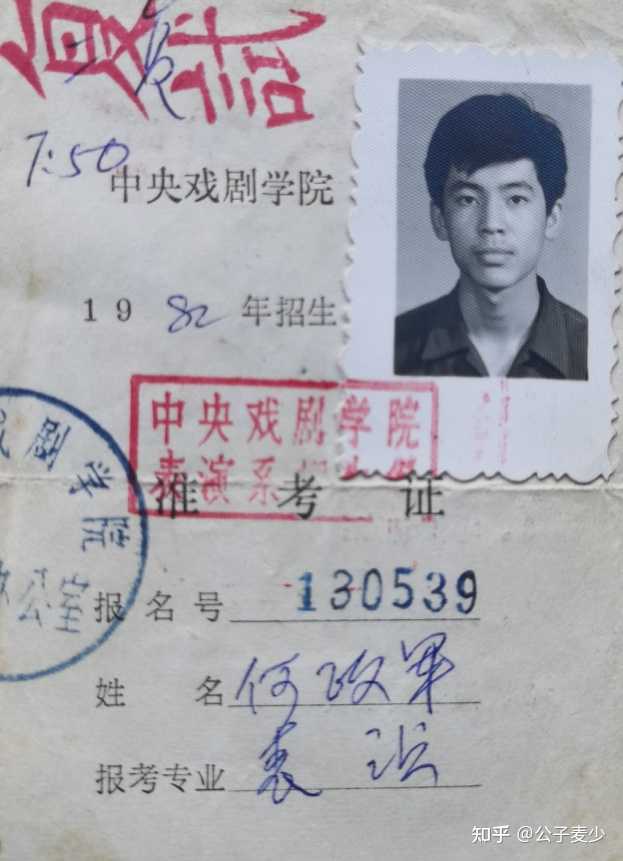 复试
7:50
中央戏剧学院
19 82 年招生
中央戏剧学院
表演系
准考证
剧学院
公室
报名号 130539
姓名 何政军
报考专业 表演
知乎 @公子麦少